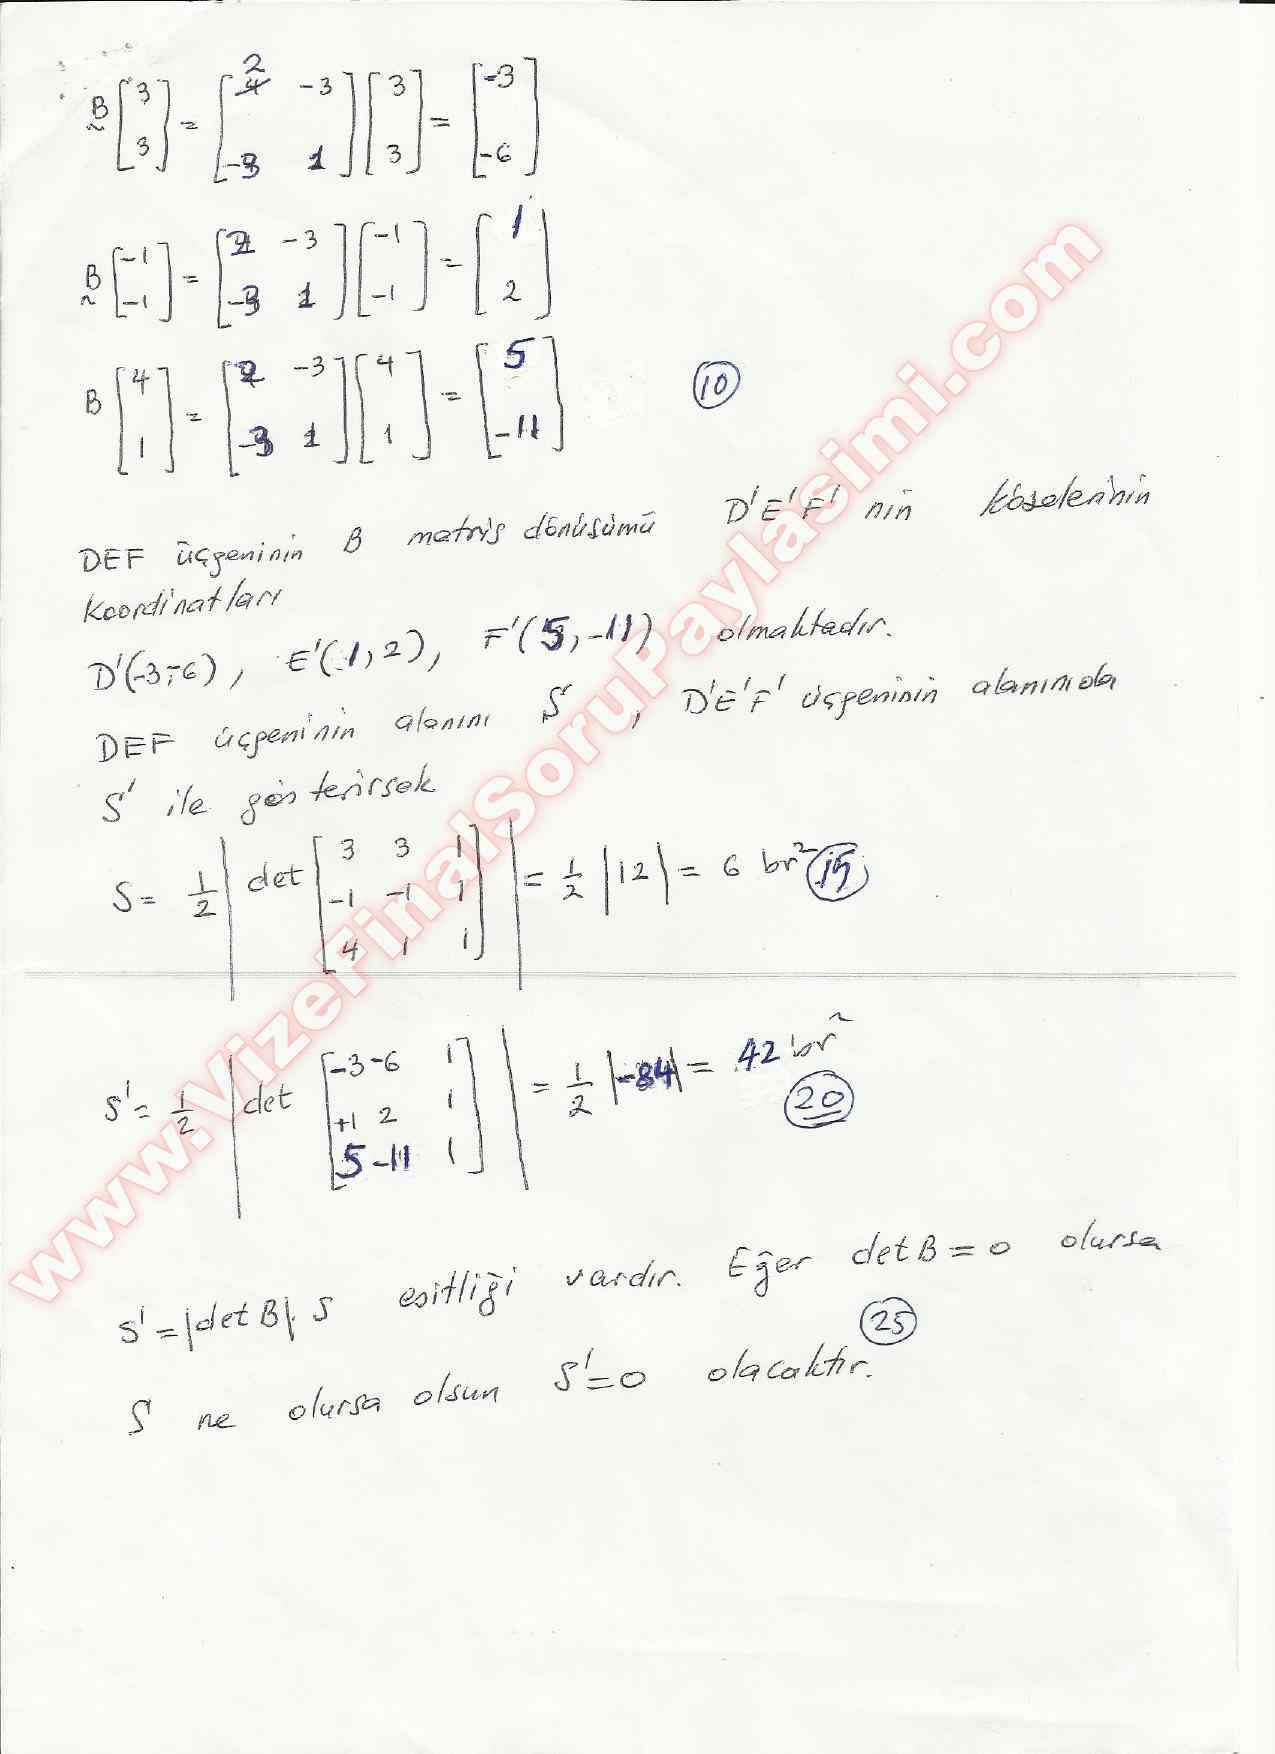 B [3 3] = [2 4 -3 -3 1] [3 3] = [-3 -6]
B [-1 -1] = [2 -3 -3 1] [-1 -1] = [1 2]
B [4 1] = [2 -3 -3 1] [4 1] = [5 -11] 10
DEF üçgeninin B matris dönüşümü D'E'F' nin köşelerinin
koordinatları
D'(-3,-6), E'(1,2), F'(5,-11) olmaktadır.
DEF üçgeninin alanını S, D'E'F' üçgeninin alanınıda
S' ile gösterirsek
S = 1/2 |det [3 3 1 -1 -1 1 4 1 1]| = 1/2 |12| = 6 br² 15
S' = 1/2 |det [-3 -6 1 +1 2 1 5 -11 1]| = 1/2 |-84| = 42 br²
20
S' = |det B|. S esitliği vardır. Eğer det B = 0 olursa
25
S ne olursa olsun S' = 0 olacaktır.
www.VizeFinalSoruPaylasimi.com